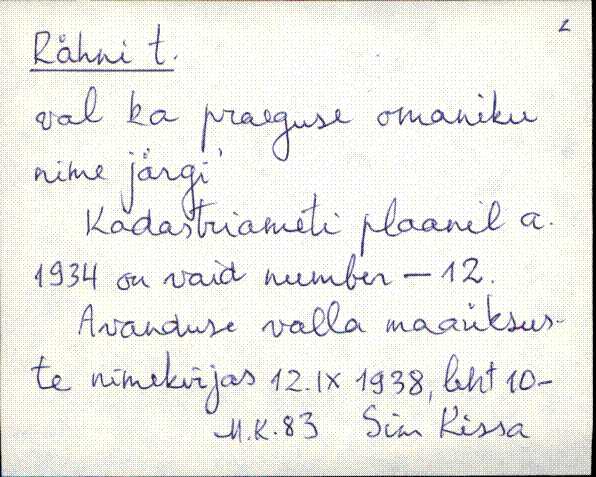 2
Rähni t.
val ka praeguse omaniku
nime järgi'
Kadastriameti plaanil a.
1934 on vaid number – 12.
Avanduse valla maaüksus-
te nimekirjas 12.IX 1938, leht 10–
M.K. 83 Sim Kissa